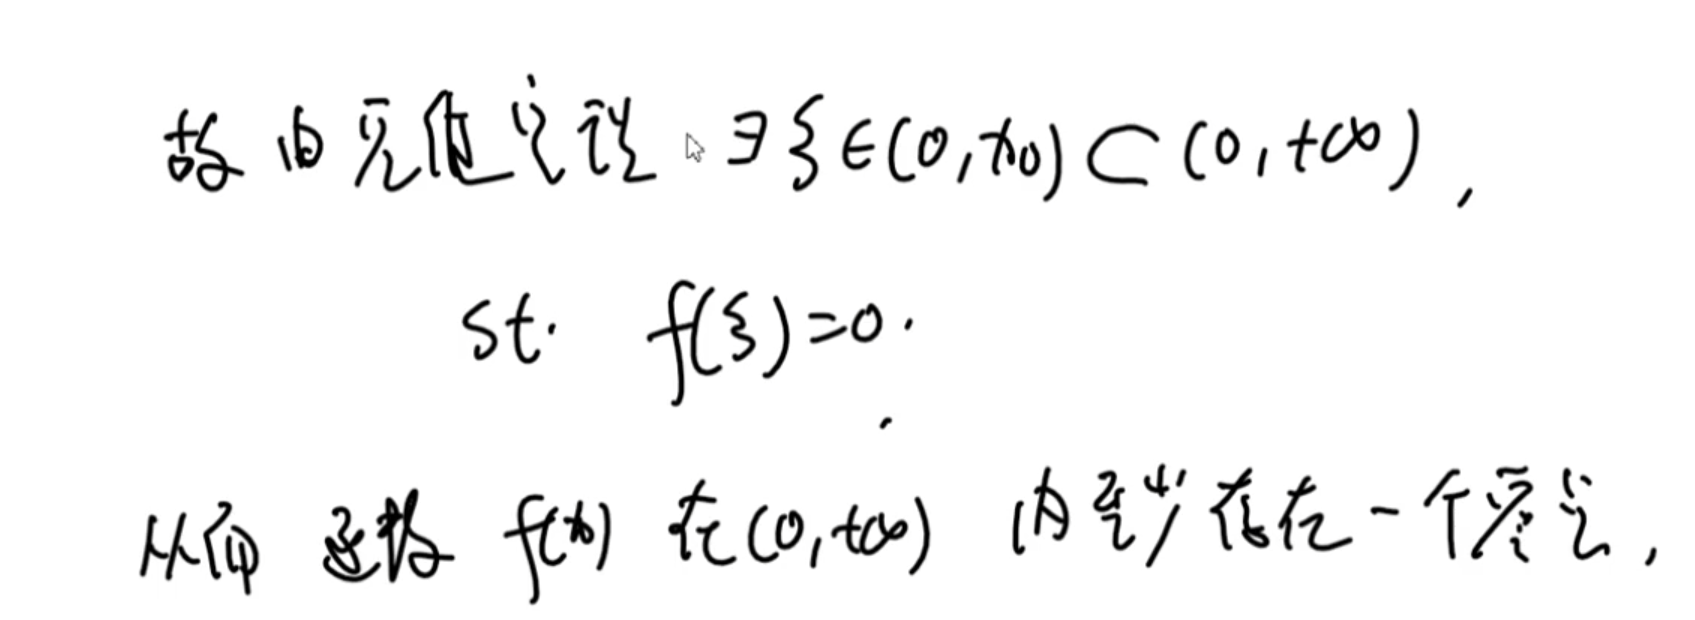 故由零值定理 ∃ξ∈(0,x₀)⊂(0,+∞),
st. f(ξ)=0.
从而函数 f(x) 在(0,+∞) 内至少存在一个零点,